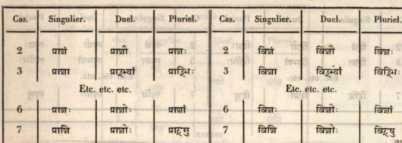 Cas. Singulier. Duel. Pluriel. Cas. Singulier. Duel. Pluriel.
2 प्राशं प्राशौ प्राशः 2 विशं विशौ विशः
3 प्राशा प्राड्भ्यां प्राड्भिः 3 विशा विड्भ्यां विड्भिः
Etc. etc. etc. Etc. etc. etc.
6 प्राशः प्राशोः प्राशां 6 विशः विशोः विशां
7 प्राशि प्राशोः प्राट्सु 7 विशि विशोः विट्सु